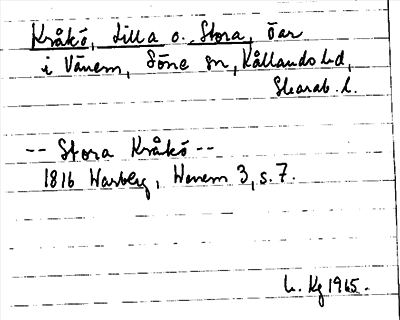 Kråkö, Lilla o. Stora, öar
i Vänern, Söne sn, Kållands hd,
Skarab. l.
-- Stora Kråkö --
1816 Warberg, Wenern 3, s. 7.
L. Kg 1965.